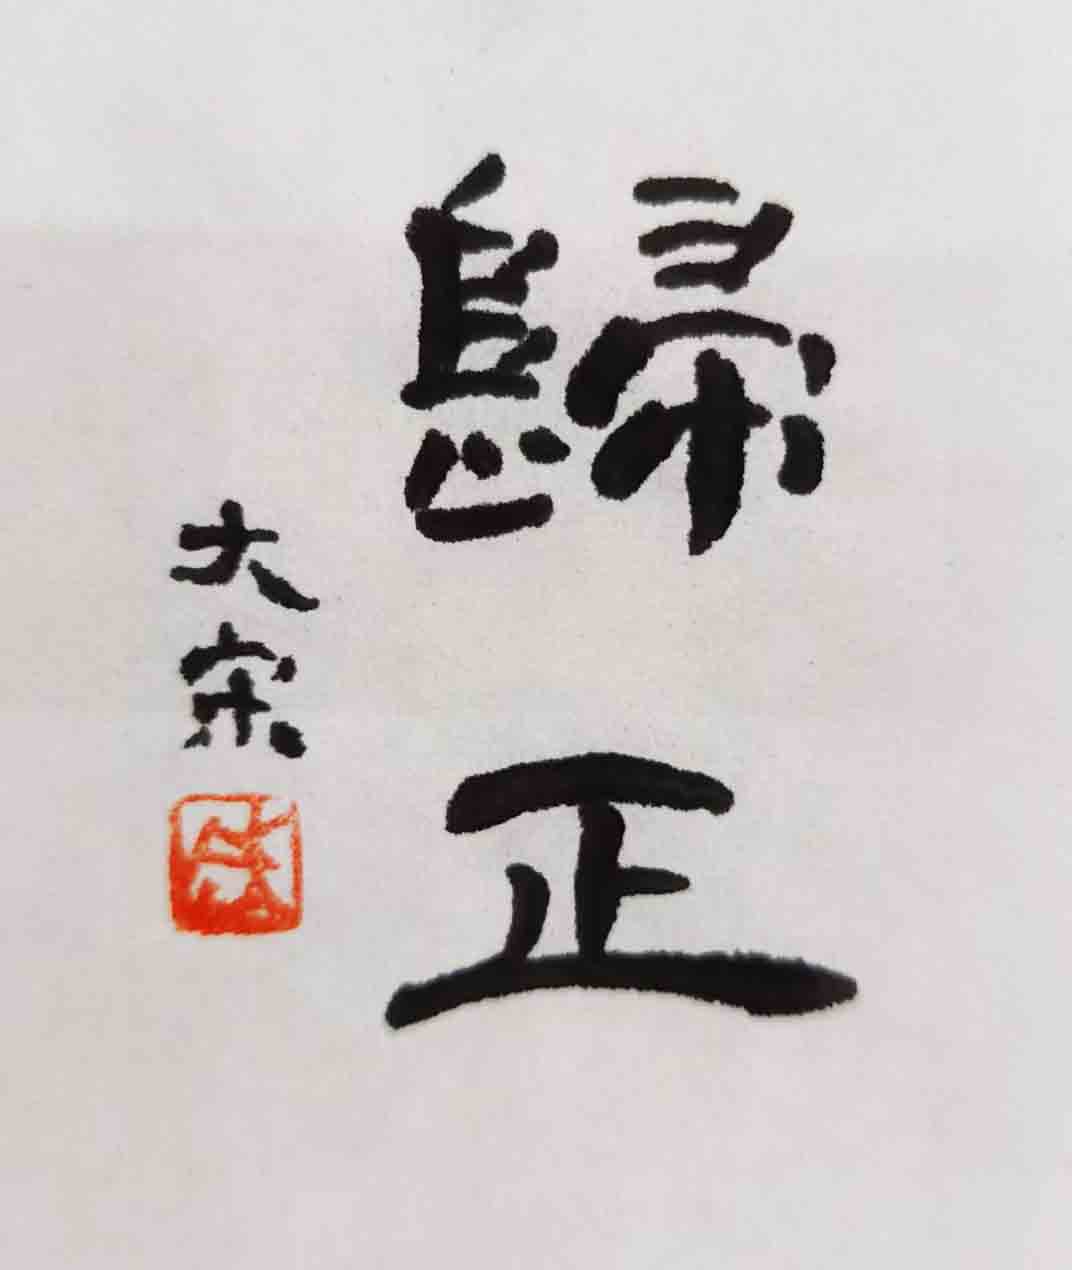 歸正
大宗